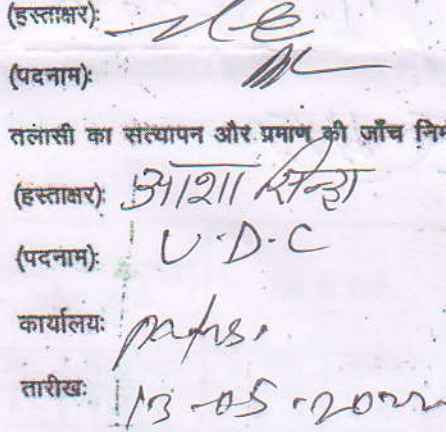 (हस्ताक्षर):
(पदनाम):
तलासी का सत्यापन और प्रमाण की जाँच
(हस्ताक्षर): आशा सिन्हा
(पदनाम): U.D.C
कार्यालय:
तारीख: 13-05-2022